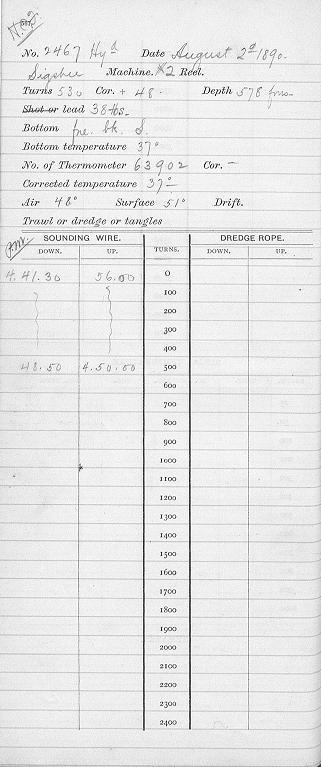 No. 2467 Hyd Date August 2d 1890.
Sigsbee Machine. 2 Reel.
Turns 530 Cor. + 48. Depth 578 fms.
Shot or lead 38 lbs.
Bottom fne. bk. S.
Bottom temperature 37°
No. of Thermometer 63902 Cor. —
Corrected temperature 37°
Air 48° Surface 51° Drift.
Trawl or dredge or tangles
P.M. SOUNDING WIRE. TURNS. DREDGE ROPE.
DOWN. UP. DOWN. UP.
4.41.30 56.00 0
100
200
300
400
48.50 4.50.00 500
600
700
800
900
1000
1100
1200
1300
1400
1500
1600
1700
1800
1900
2000
2100
2200
2300
2400